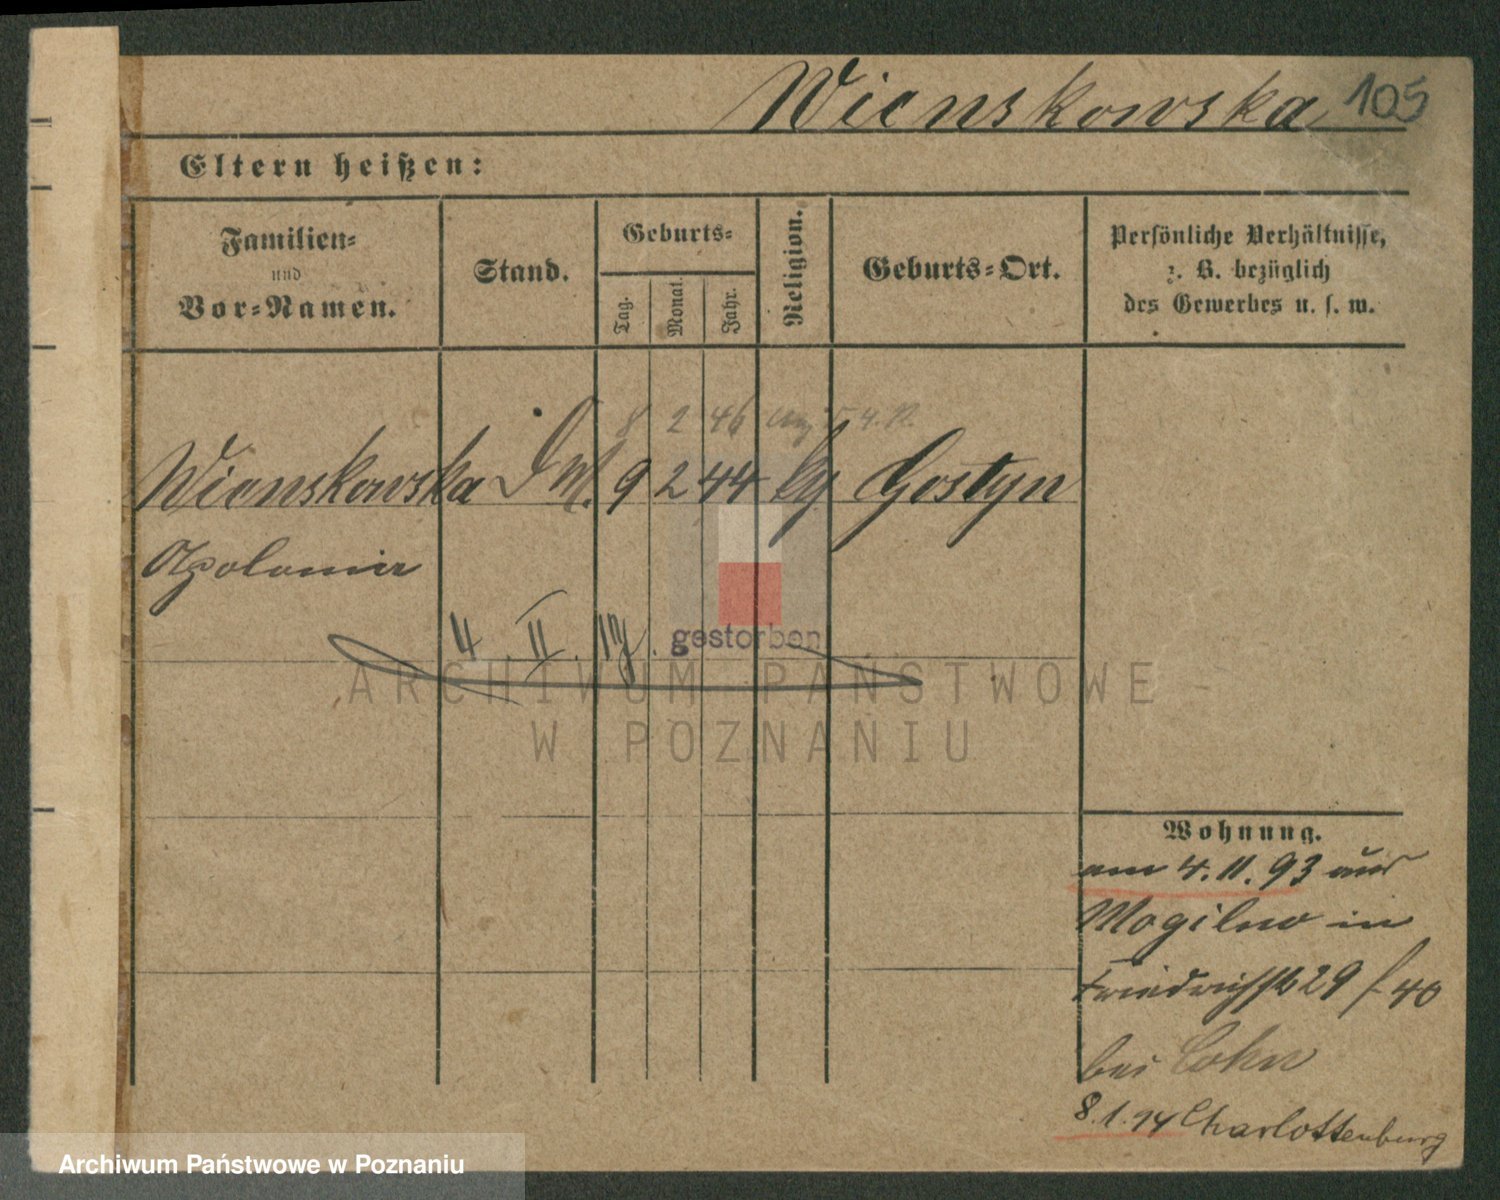 Wienskowska 105
Eltern heißen:
Familien- und Vor-Namen.
Stand.
Geburts-
Tag.
Monat.
Jahr.
Religion.
Geburts-Ort.
Persönliche Verhältnisse,
z. B. bezüglich
des Gewerbes u. s. w.
8 2 46
Wienskowska 9 2 44 Gostyn
Apolonia
4. II. 17. gestorben
ARCHIWUM PAŃSTWOWE
W POZNANIU
Wohnung.
am 4.11.93 aus
Mogilno in
Friedrichstr 29 f 40
bei Cohn
8.1.94 Charlottenburg
Archiwum Państwowe w Poznaniu